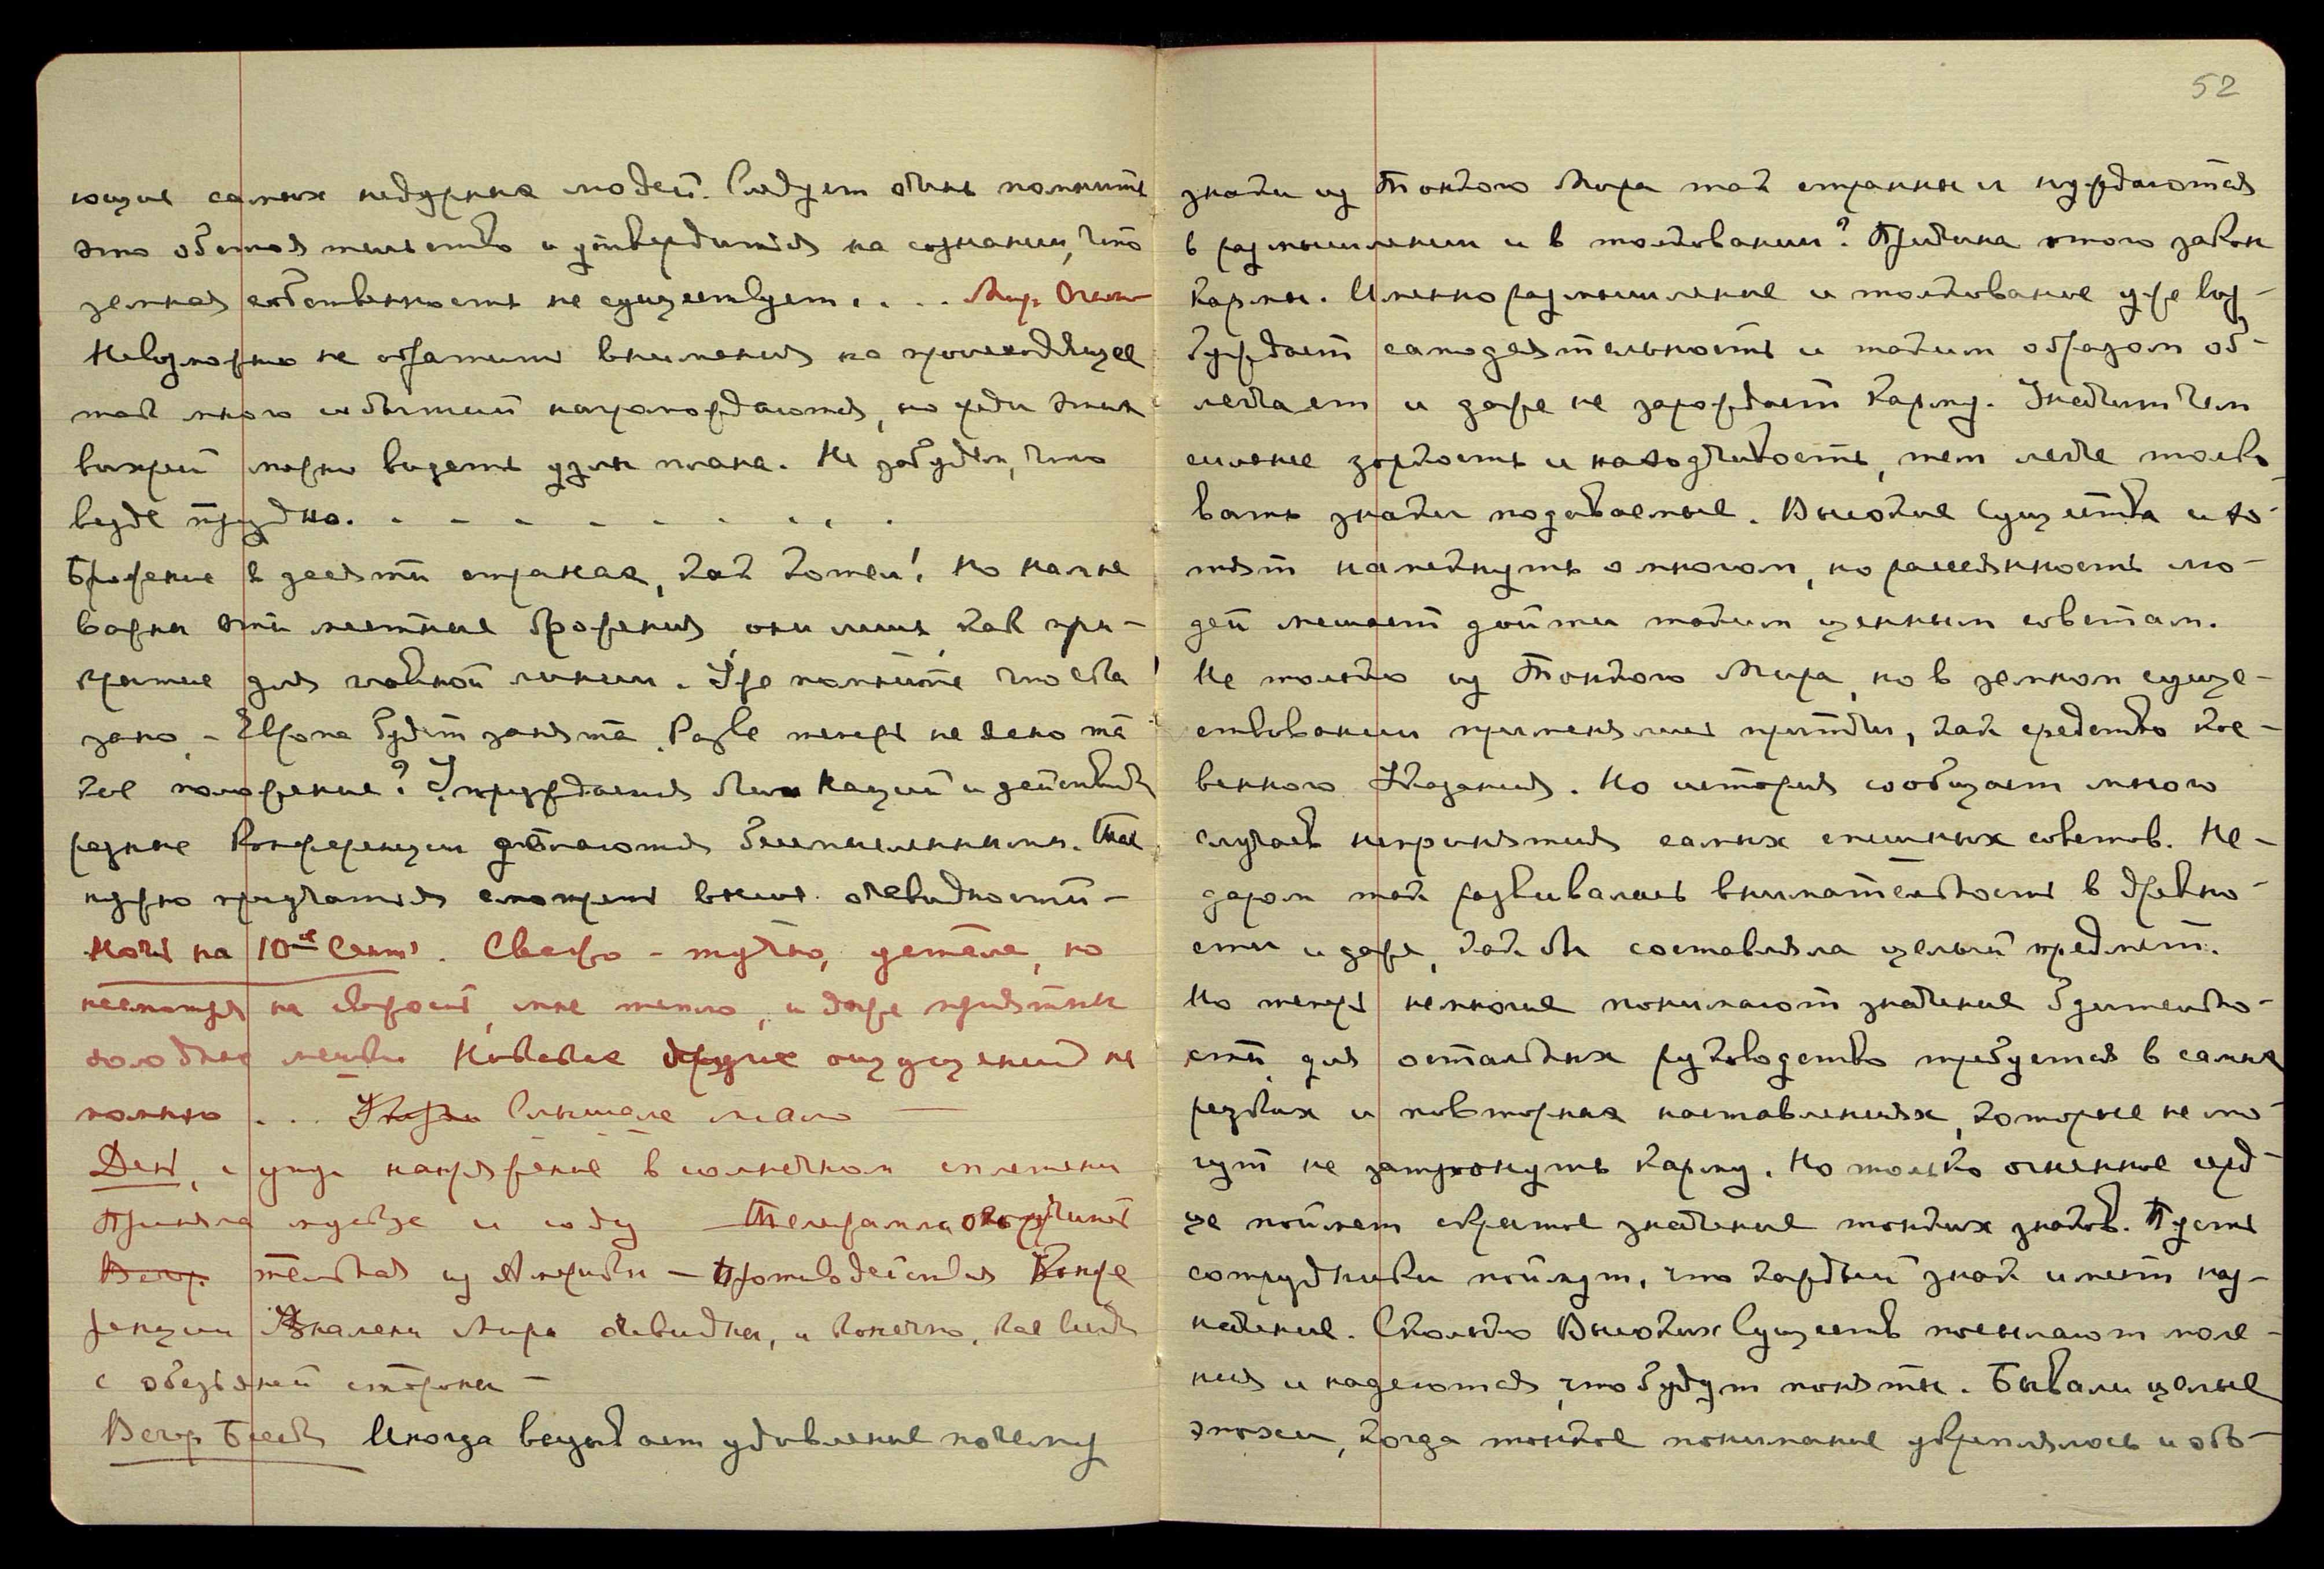 ющие самых недурных людей. Следует очень помнить
это обстоятельство и утвердиться на сознании, что
земная собственность не существует. . . . Мир Огнен
Невозможно не обратить внимания на происходящее
так много событий нагромождаются, но среди этих
вихрей можно видеть узлы плана. Не забудем, что
везде трудно. . . . . . . . . .
Брожение в десяти странах, как котел! Но нам не
важны эти местные брожения, они лишь, как при-
крытие для главной линии. Уже помните что ска
зано, - Европа будет занята. Разве теперь не ясно та
кое положение? Упраздняется Лига Наций и действит
разные конференции делаются бессмысленными. Так
нужно приучаться смотреть выше очевидности -
Ночь на 10ое Сент. Свежо - тучно, устала, но
несмотря на сырость, мне тепло, и даже приятны
холодные Никаких других ощущений не
помню . . . Слышала мало —
День, с утра напряжение в солнечном сплетени
Приняла мускус и соду — Телеграмма
Вечер. из Америки — Противодействия Конфе
ренции Знамени Мира очевидны, и конечно,
с стороны -
Вечер Беседа Иногда вызывает удивление почему
52
знаки из Тонкого Мира так странны и нуждаются
в размышлении и в толковании? Причина этого закон
Кармы. Именно размышление и толкование уже воз-
буждает самодеятельность и таким образом об-
легчает и даже не зарождает карму. Значит чем
сильнее зоркость и находчивость, тем легче толко
вать знаки подаваемые. Высокие Существа и хо-
тят намекнуть о многом, но рассеянность лю-
дей мешает дойти таким ценным советам.
Не только из Тонкого Мира, но в земном суще-
ствовании применялись притчи, как средство кос-
венного Указания. Но история сообщает много
случаев непринятия самых спешных советов. Не-
даром так развивалась внимательность в древно-
сти и даже, как бы составляла целый предмет.
Но теперь немногие понимают значение бдительно-
сти, для остальных руководство требуется в самых
резких и повторных наставлениях, которые не мо-
гут не затронуть карму. Но только огненное серд-
це поймет скрытое значение тонких знаков. Пусть
сотрудники поймут, что каждый знак имеет наз-
начение. Сколько Высоких Существ посылают моле-
ния и надеются, что будут поняты. Бывали целые
эпохи, когда тонкое понимание укреплялось и обо-